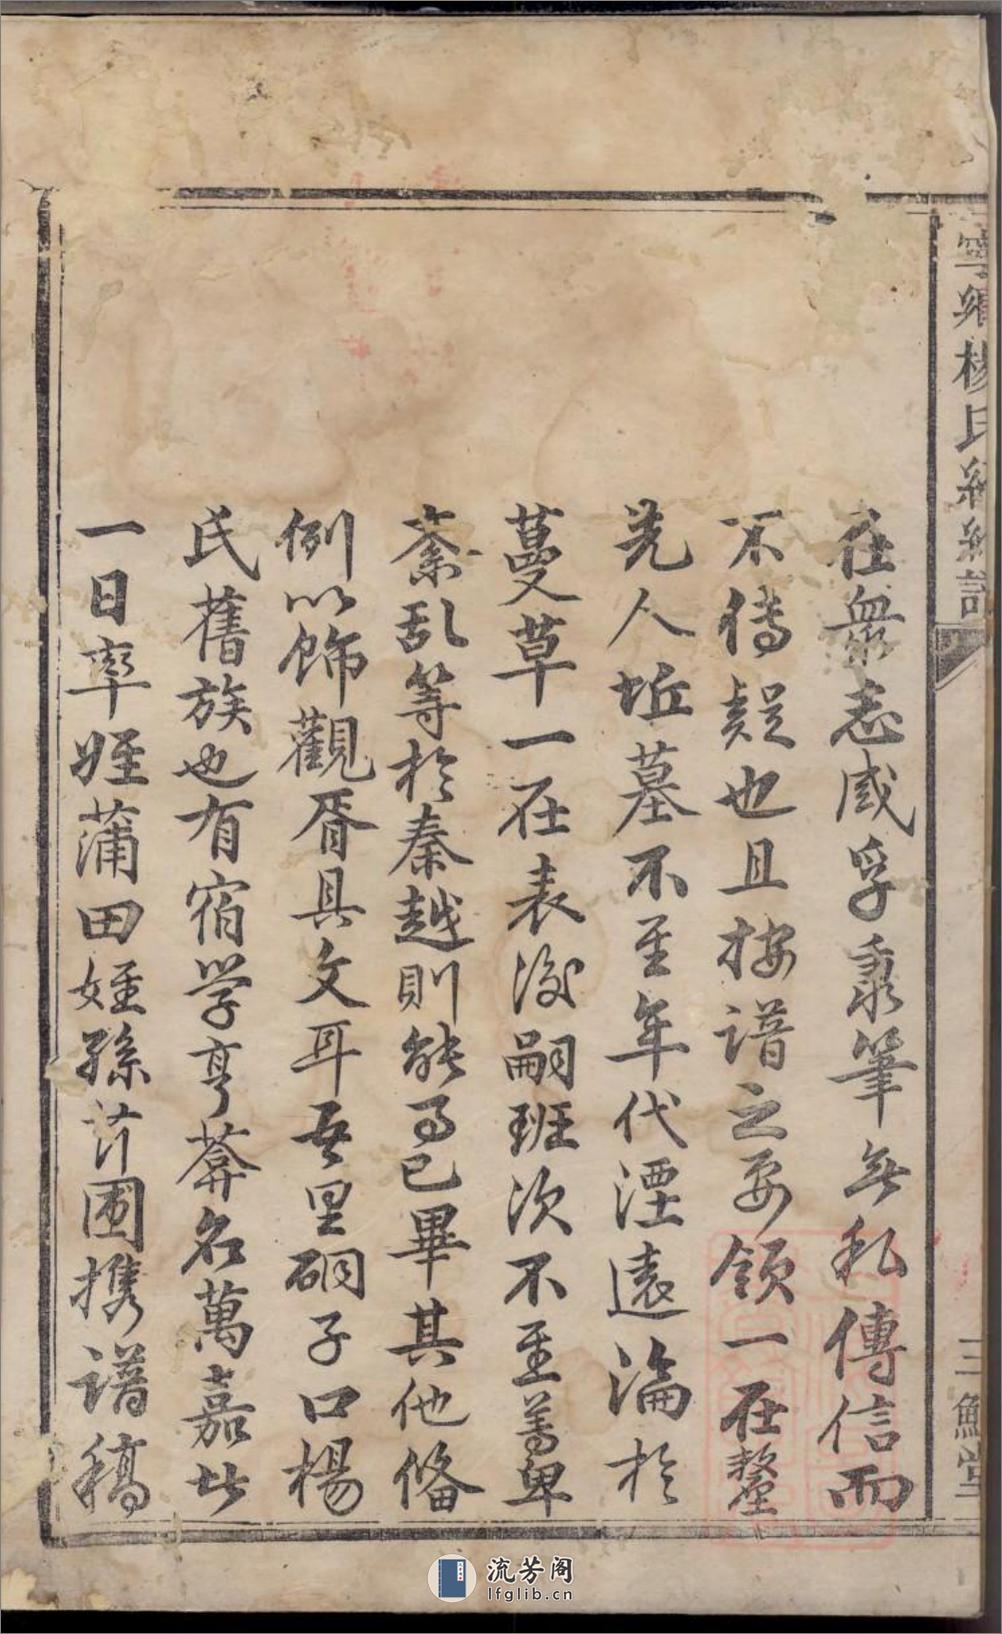 寧鄉楊氏續編譜
三鱣堂
在衆志咸孚秉筆無私傳信而
不傳疑也且按譜之要領一在釐
先人坵墓不至年代湮遠淪於
蔓草一在表後嗣班次不至尊卑
紊乱等於秦越則能事已畢其他俻
例以飾觀胥具文耳吾里硐子口楊
氏舊族也有宿学亨莾名萬嘉者
一日率姪蒲田姪孫圃携譜稿
流芳阁
lfglib.cn